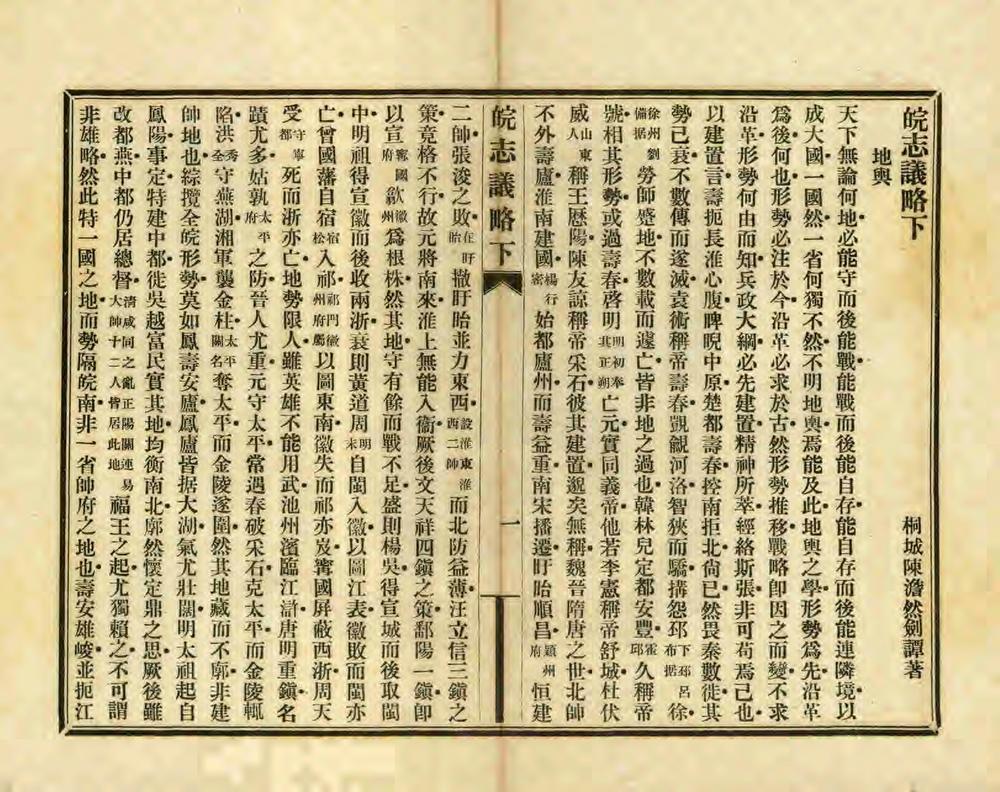 皖志議略下
地輿
桐城陳澹然劍譚著
天下無論何地必能守而後能戰能戰而後能自存能自存而後能連隣境以
成大國一國然一省何獨不然不明地輿焉能及此地輿之學形勢爲先沿革
爲後何也形勢必注於今沿革必求於古然形勢推移戰略卽因之而變不求
沿革形勢何由而知兵政大綱必先建置精神所萃經絡斯張非可苟焉已也
以建置言壽扼長淮心腹睥睨中原楚都壽春控南拒北尙已然畏秦數徙其
勢已衰不數傳而遂滅袁術稱帝壽春覬覦河洛智狹而驕搆怨邳下邳呂布据徐
徐州劉備据勞師蹙地不數載而遽亡皆非地之過也韓林兒定都安豐霍邱久稱帝
號相其形勢或過壽春啓明明初奉其正朔亡元實同義帝他若李憲稱帝舒城杜伏
威山東人稱王歷陽陳友諒稱帝采石彼其建置邈矣無稱魏晉隋唐之世北帥
不外壽廬淮南建國楊行密始都廬州而壽益重南宋播遷盱眙順昌潁州府恒建
皖志議略下
一
二帥張浚之敗在盱眙撤盱眙並力東西設淮東淮西二帥而北防益薄汪立信三鎭之
策竟格不行故元將南來淮上無能入衞厥後文天祥四鎭之策鄱陽一鎭卽
以宣寧國府歙徽州爲根株然其地守有餘而戰不足盛則楊吳得宣城而後取閩
中明祖得宣徽而後收兩浙衰則黃道周明末自閩入徽以圖江表徽敗而閩亦
亡曾國藩自宿宿松入祁祁門徽州府屬以圖東南徽失而祁亦岌寗國屏蔽西浙周天
受守寧都死而浙亦亡地勢限人雖英雄不能用武池州濱臨江滸唐明重鎭名
蹟尤多姑孰太平府之防晉人尤重元守太平常遇春破采石克太平而金陵輒
陷洪秀全守蕪湖湘軍襲金柱太平關名奪太平而金陵遂圍然其地藏而不廓非建
帥地也綜攬全皖形勢莫如鳳壽安廬鳳廬皆据大湖氣尤壯闊明太祖起自
鳳陽事定特建中都徙吳越富民實其地均衡南北廓然懷定鼎之思厥後雖
改都燕中都仍居總督淸咸同之亂正陽關連易大帥十二人皆居此地福王之起尤獨賴之不可謂
非雄略然此特一國之地而勢隔皖南非一省帥府之地也壽安雄峻並扼江